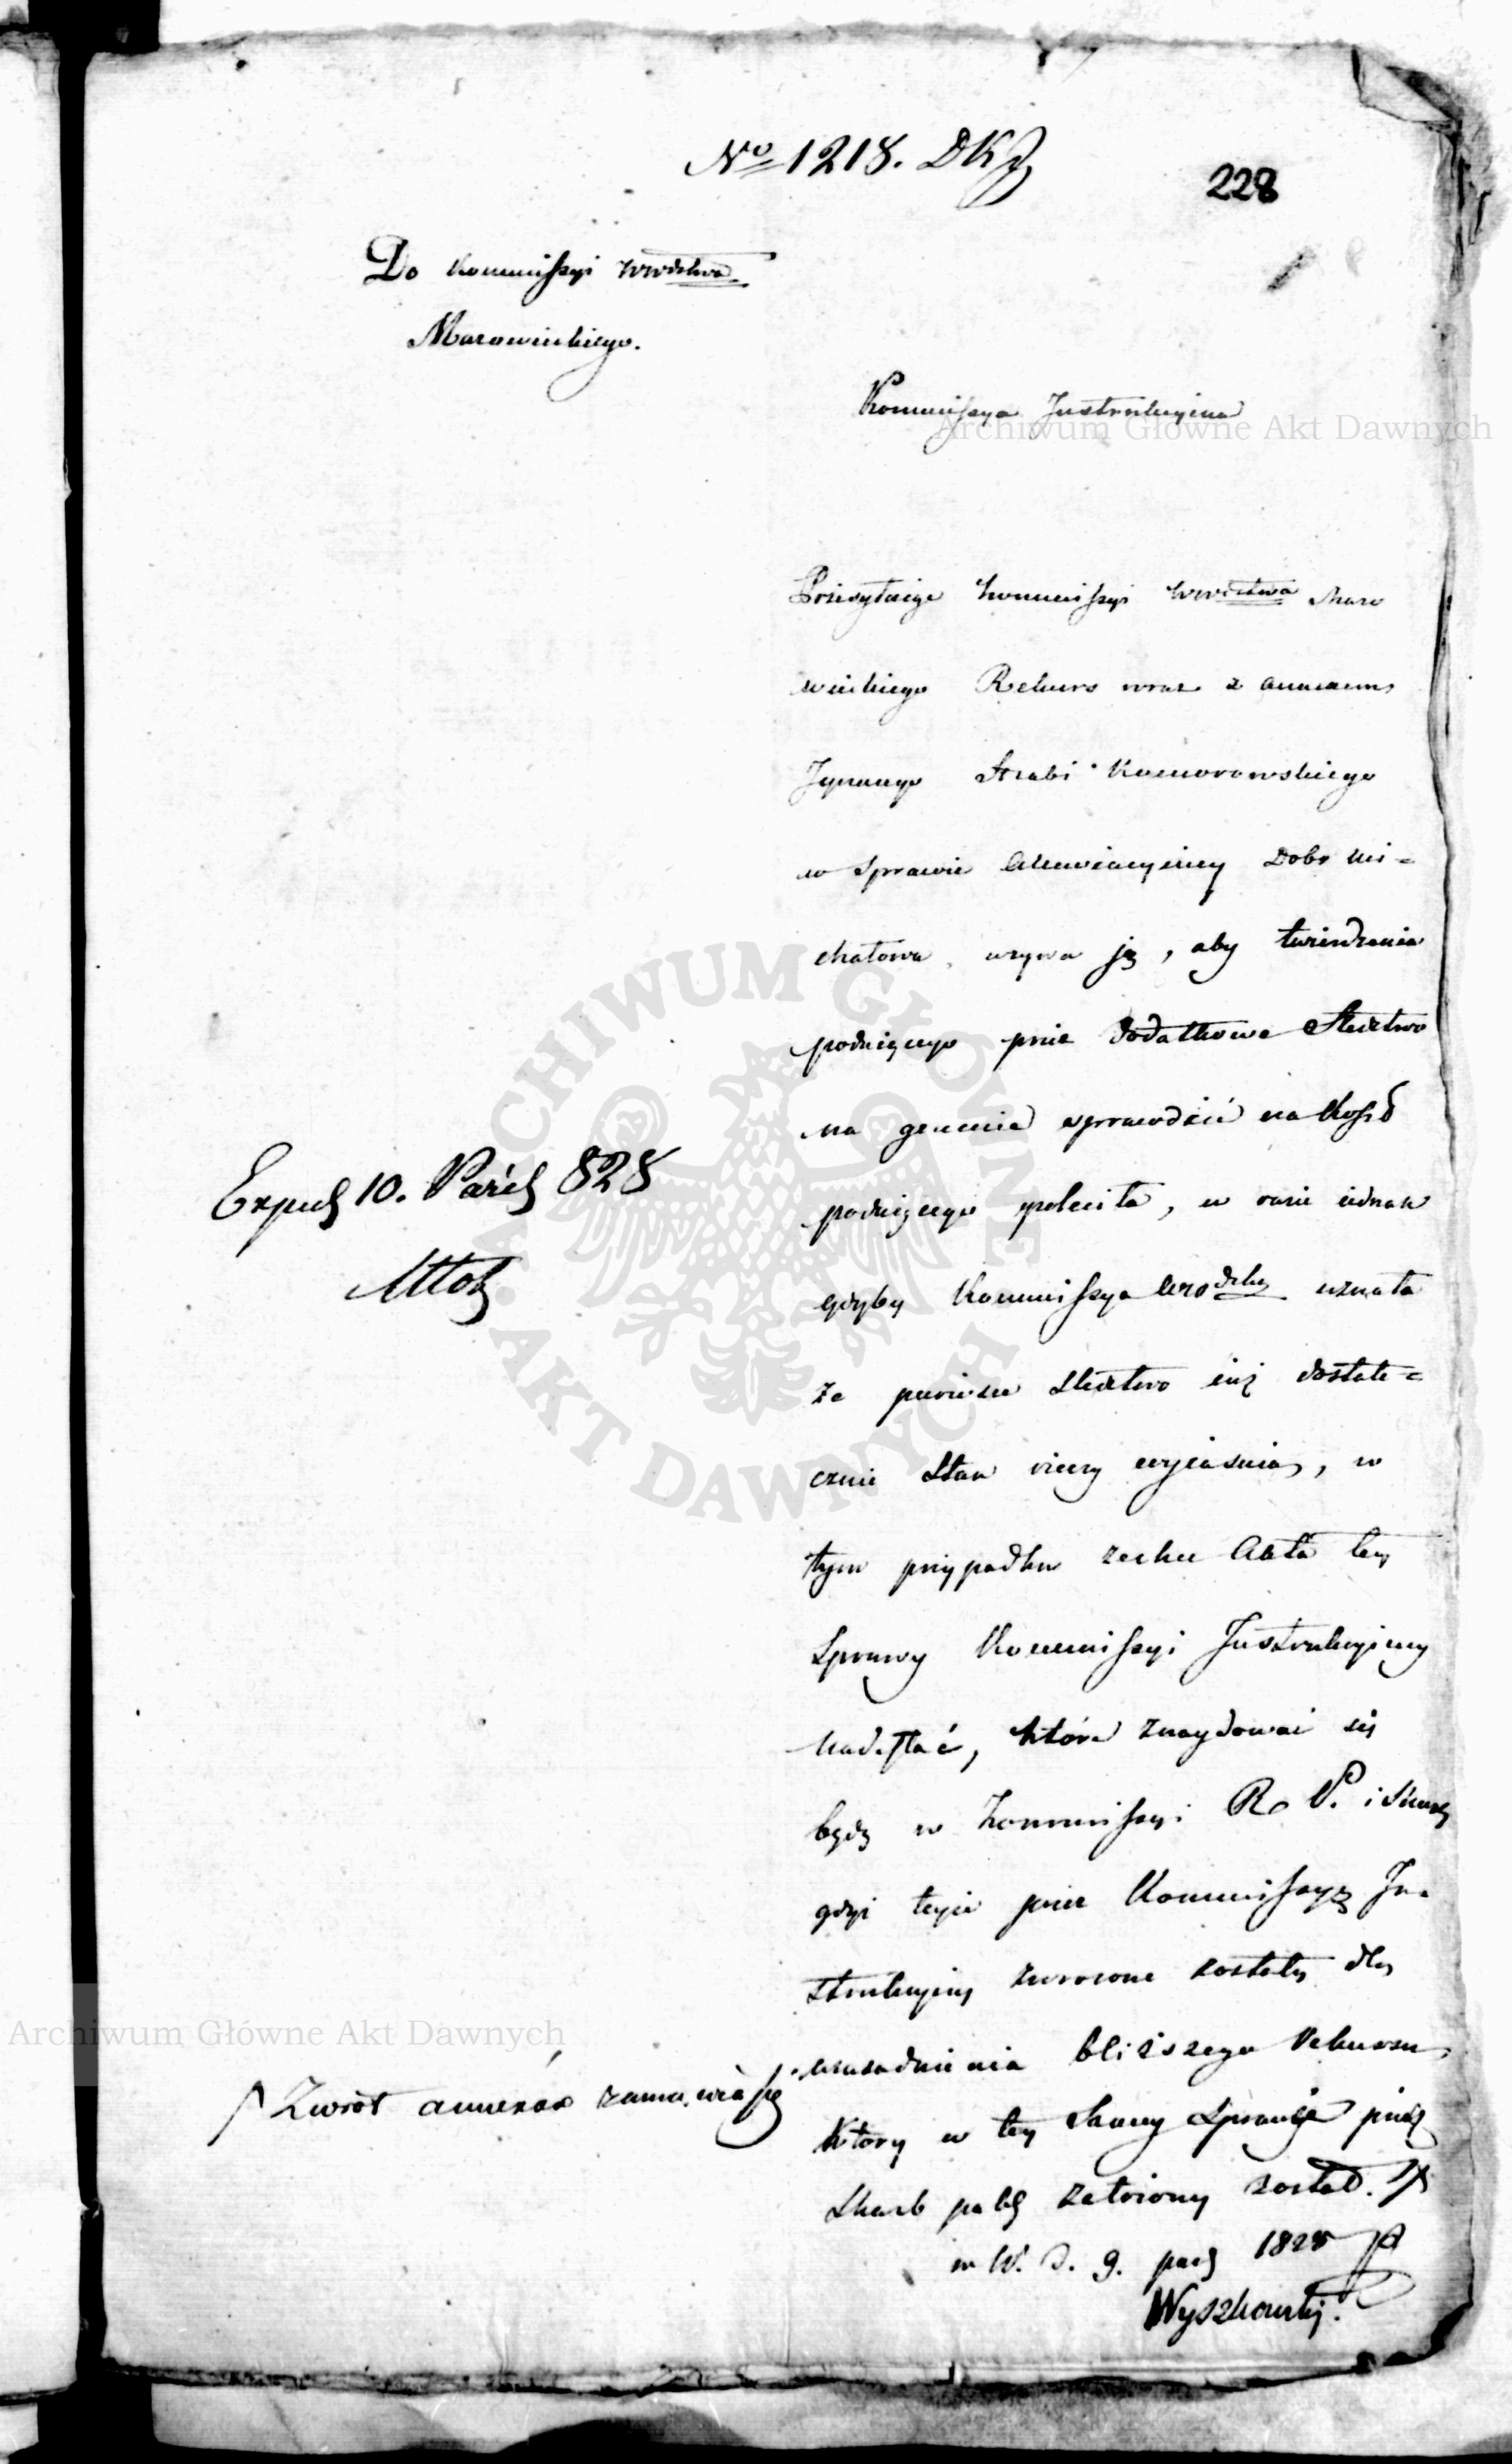 No 1218. DKJ
228
Do Kommissyi Wwdztwa
Mazowieckiego.
Kommissya Instrukcyina
Przesyłaiąc Kommissyi Wwdztwa Mazo
wieckiego Rekurs wraz z annexami
Ignacego Hrabi Komorowskiego
w sprawie Allewiacyiney Dobr Mi=
chałowa, wzywa ją, aby twierdzenia
podaiącego przez dodatkowe Sledztwo
na gruncie sprawdzić na koszt
podaiącego poleciła, w razie iednak
gdyby Kommissya Wwdzka uznała
że pierwsze Sledztwo iuż dostate=
cznie Stan rzeczy wyiaśnia, w
tym przypadku zechce Akta tey
Sprawy Kommissyi Instrukcyiney
nadesłać, które znaydować się
będą w Kommissyi R. P. i Skarbu
gdyż tejże przez Kommissyą In=
strukcyiną zwrócone zostały dla
uzasadnienia bliższego Rekursu,
który w tey samey Sprawie przez
Skarb publ założony został.
w W. d. 9. paźd 1828
Wyszkowski.
Exped 10. Paźd 828
Zwrot annexów zamawia się
Archiwum Główne Akt Dawnych
Archiwum Główne Akt Dawnych
ARCHIWUM GŁÓWNE AKT DAWNYCH